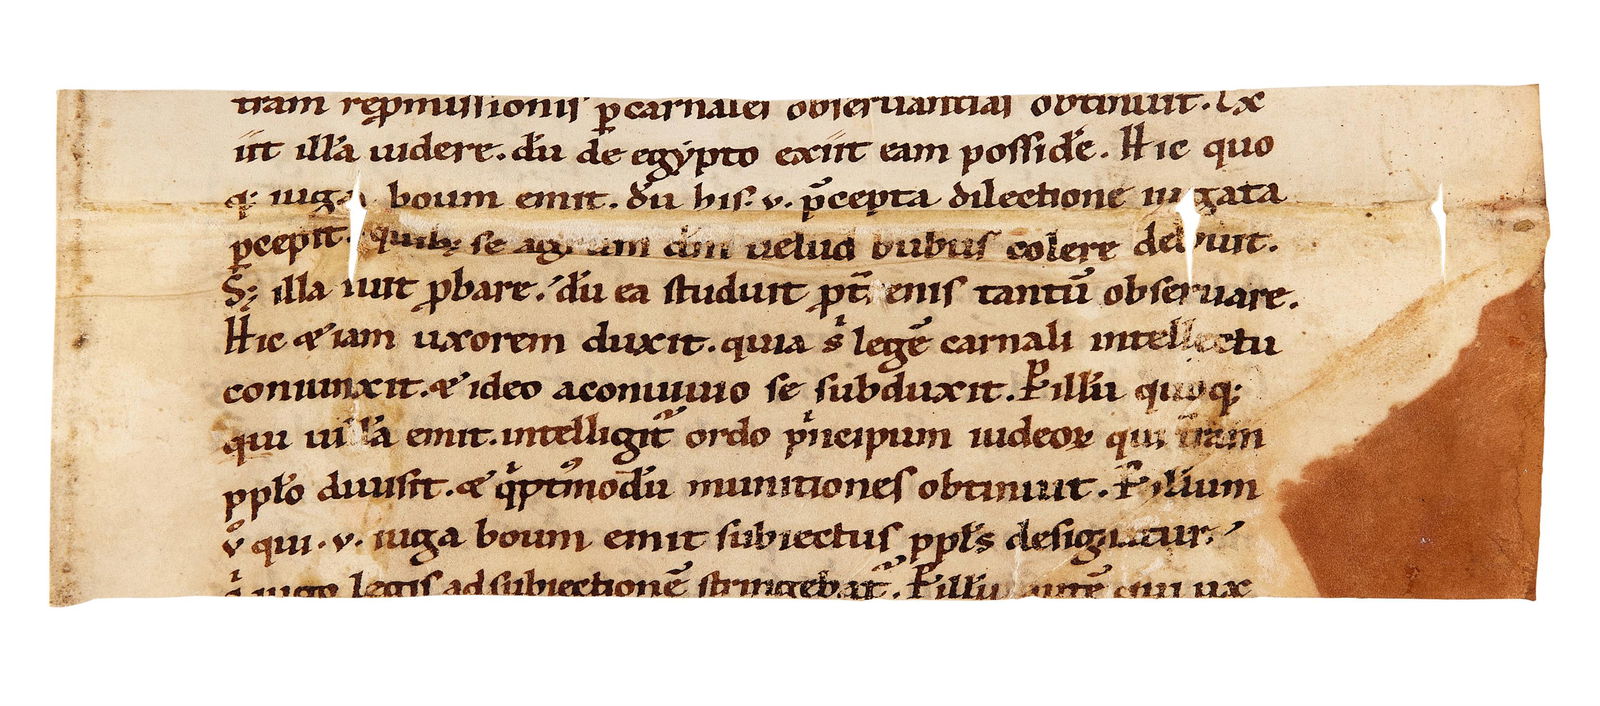 tram repmissionis p̱ carnales obseruantias obtinuit. Ex
iit illā uidere. dū de egypto exiit eam possidē. Hic quo
q; iuga boum emit. dū his. v. p̄cepta dilectione iugata
p̱cepit. quib; se agrum dn̄i uelud bubus colere debuit.
S; illa iuit ꝓbare. dū ea studuit pt̄ enis tantū obseruare.
Hic & iam uxorem duxit. quia s̄ legē carnali intellectu
coniunxit. & ideo aconuiuio se subduxit. P̱ illū quoq;
qui uillā emit. intelligit᷑ ordo pͥncipum iudeoꝝ qui t̄ram
ppl̄o diuisit. & qͣptmodū munitiones obtinuit. P̱ illum
v̊ qui. v. iuga boum emit subiectus ppl̄s designatur.
iugo legis ad subiectionē stringebat᷑. P̱ illū autē qui ux